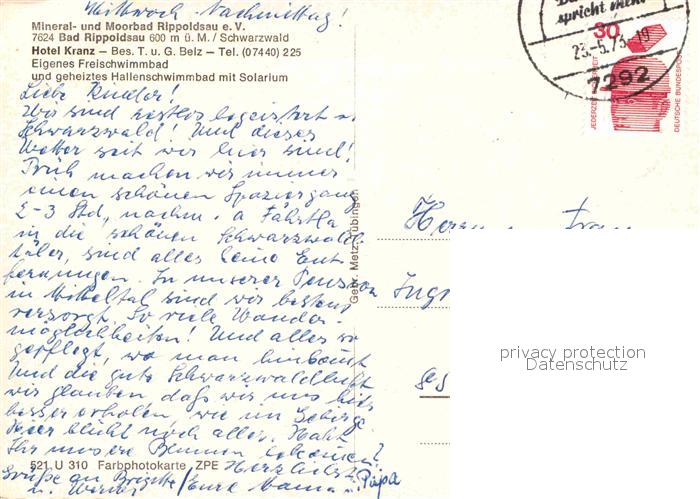 Mittwoch Nachmittag!
Mineral- und Moorbad Rippoldsau e. V.
7624 Bad Rippoldsau 600 m ü. M. / Schwarzwald
Hotel Kranz – Bes. T. u. G. Belz – Tel. (07440) 225
Eigenes Freischwimmbad
und geheiztes Hallenschwimmbad mit Solarium
Liebe Kinder!
Wir sind restlos begeistert v.
Schwarzwald! Und dieses
Wetter seit wir hier sind!
Früh machen wir immer
einen schönen Spaziergang
2-3 Std, nachm. a Fährtle
in die schönen Schwarzwald-
täler, sind alles keine Ent-
fernungen. In unserer Pension
in sind wir bestens
versorgt. So viele Wander-
möglichkeiten! Und alles so
gepflegt, wo man hinkommt
Und die gute Schwarzwaldluft
wir glauben daß wir uns hier
besser erholen, wie im Gebirge.
Hier blüht noch alles. Habt
Ihr unsere Blumen bekommen?
521 U 310 Farbphotokarte ZPE Herzlichst
Grüße an Brigitte / Eure Mama u. Papa
u. Werner
Gebr. Metz, Tübingen
spricht mehr
23.-5.73.-19
7292
30
JEDERZEIT SICHERHEIT
DEUTSCHE BUNDESPOST
Herrn u. Frau
Ingr
privacy protection
Datenschutz